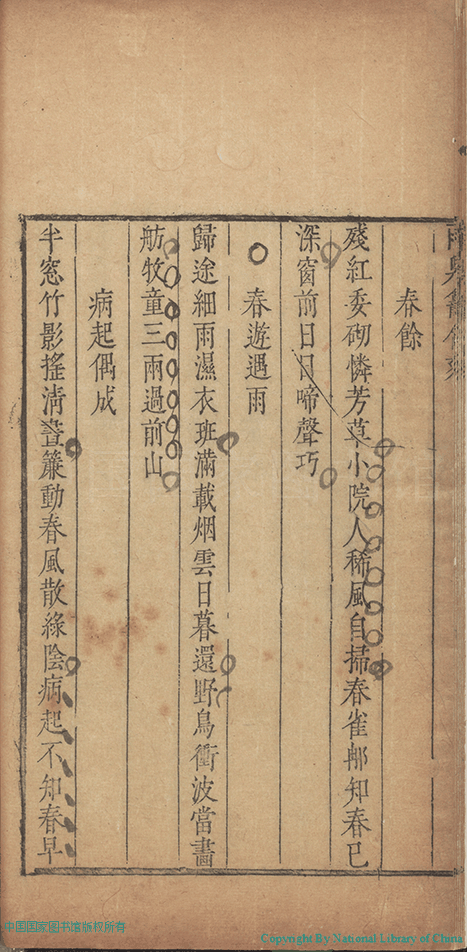 春餘
殘紅委砌憐芳草小院人稀風自掃春雀那知春已
深窗前日日啼聲巧
春遊遇雨
歸途細雨濕衣班滿載烟雲日暮還野鳥衝波當畫
舫牧童三兩過前山
病起偶成
半窓竹影搖清晝簾動春風散綠陰病起不知春早
中国国家图书馆版权所有
Copyright By National Library of China